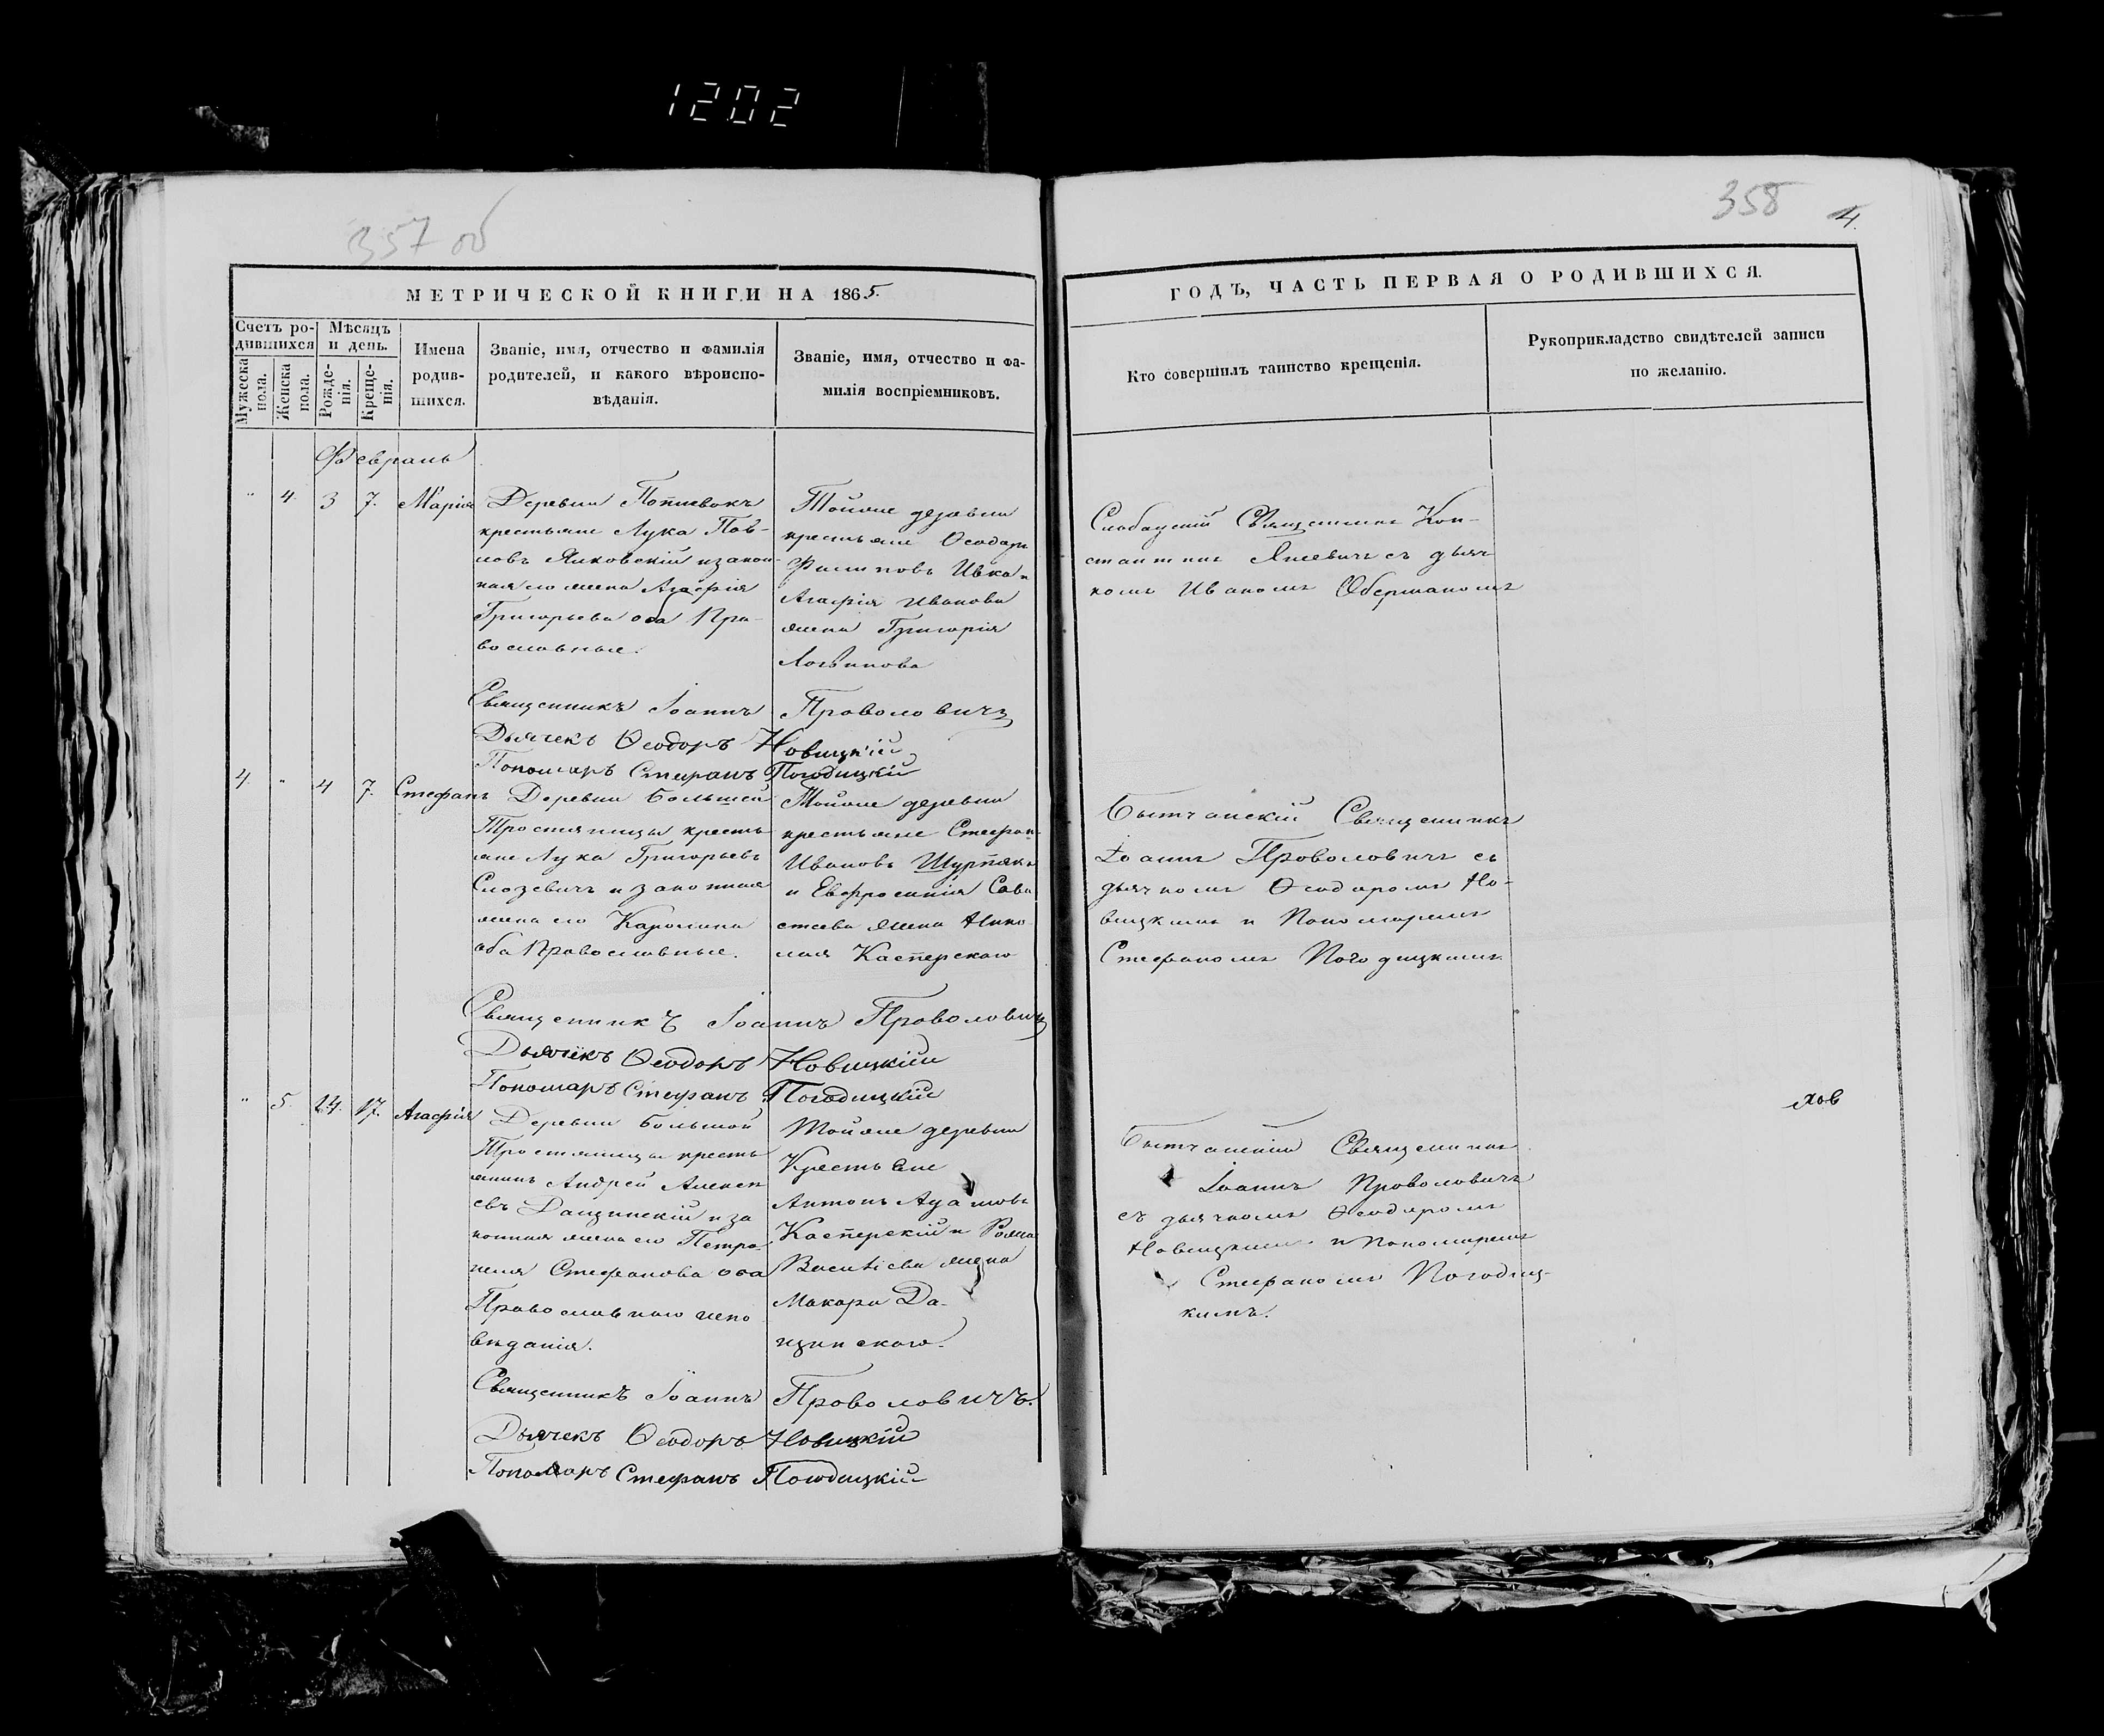 1202
357 об
358
4.
МЕТРИЧЕСКОЙ КНИГИ НА 1865.
ГОДЪ, ЧАСТЬ ПЕРВАЯ О РОДИВШИХСЯ.
Счетъ ро-
дившихся
Мужеска пола.
Женска пола.
Мѣсяцъ и день.
Рожде-
нія.
Креще-
нія.
Имена
родив-
шихся.
Званіе, имя, отчество и фамилія
родителей, и какого вѣроиспо-
вѣданія.
Званіе, имя, отчество и фа-
милія воспріемниковъ.
Кто совершилъ таинство крещенія.
Рукоприкладство свидѣтелей записи
по желанію.
Февраль
" 4. 3 7. Марія
Деревни
крестьяне Лука Пав-
ловъ Янковскій и закон-
ная его жена Агафія
Григорьева оба Пра-
вославные.
Тойже деревни
крестьяне Ѳеодоръ
Филиповъ Ивка и
Агафія Иванова
жена Григорія
Логвинова
Священникъ Кон-
стантинъ съ дьяч
комъ Иваномъ
Священникъ Іоаннъ Проволовичъ
Дьячекъ Ѳеодоръ Новицкій
Пономаръ Стефанъ Погодицкій
4. " 4 7. Стефанъ
Деревни Большей
Тростяницы кресть
яне Лука Григорьевъ
и законная
жена его Каролина
оба Православные.
Тойже деревни
крестьяне Стефан
Ивановъ Шурпякъ
и Евфросинія Сава
стеева жена Нико
лая Касперскаго
Бытчанскій Священникъ
Іоаннъ Проволовичъ съ
дьячкомъ Ѳеодоромъ Но-
вицкимъ и Пономаремъ
Стефаномъ Погодицкимъ.
Священникъ Іоаннъ Проволовичъ
Дьячекъ Ѳеодоръ Новицкій
Пономаръ Стефанъ Погодицкій
" 5. 14. 17. Агафія
Деревни Большой
Тростяницы кресть
янинъ Андрей Алексѣ
евъ Данцинскій и за
конная жена его Петро
неля Стефанова оба
Православнаго испо
вѣданія.
Тойже деревни
Крестьяне
Антонъ Адамовъ
Касперскій и
жена
Макара Да-
цинскаго.
Бытчанскій Священникъ
Іоаннъ Проволовичъ
съ дьячкомъ Ѳеодоромъ
Новицкимъ и Пономаремъ
Стефаномъ Погодиц-
кимъ.
Священникъ Іоаннъ Проволовичъ.
Дьячекъ Ѳеодоръ Новицкій
Пономаръ Стефанъ Погодицкій